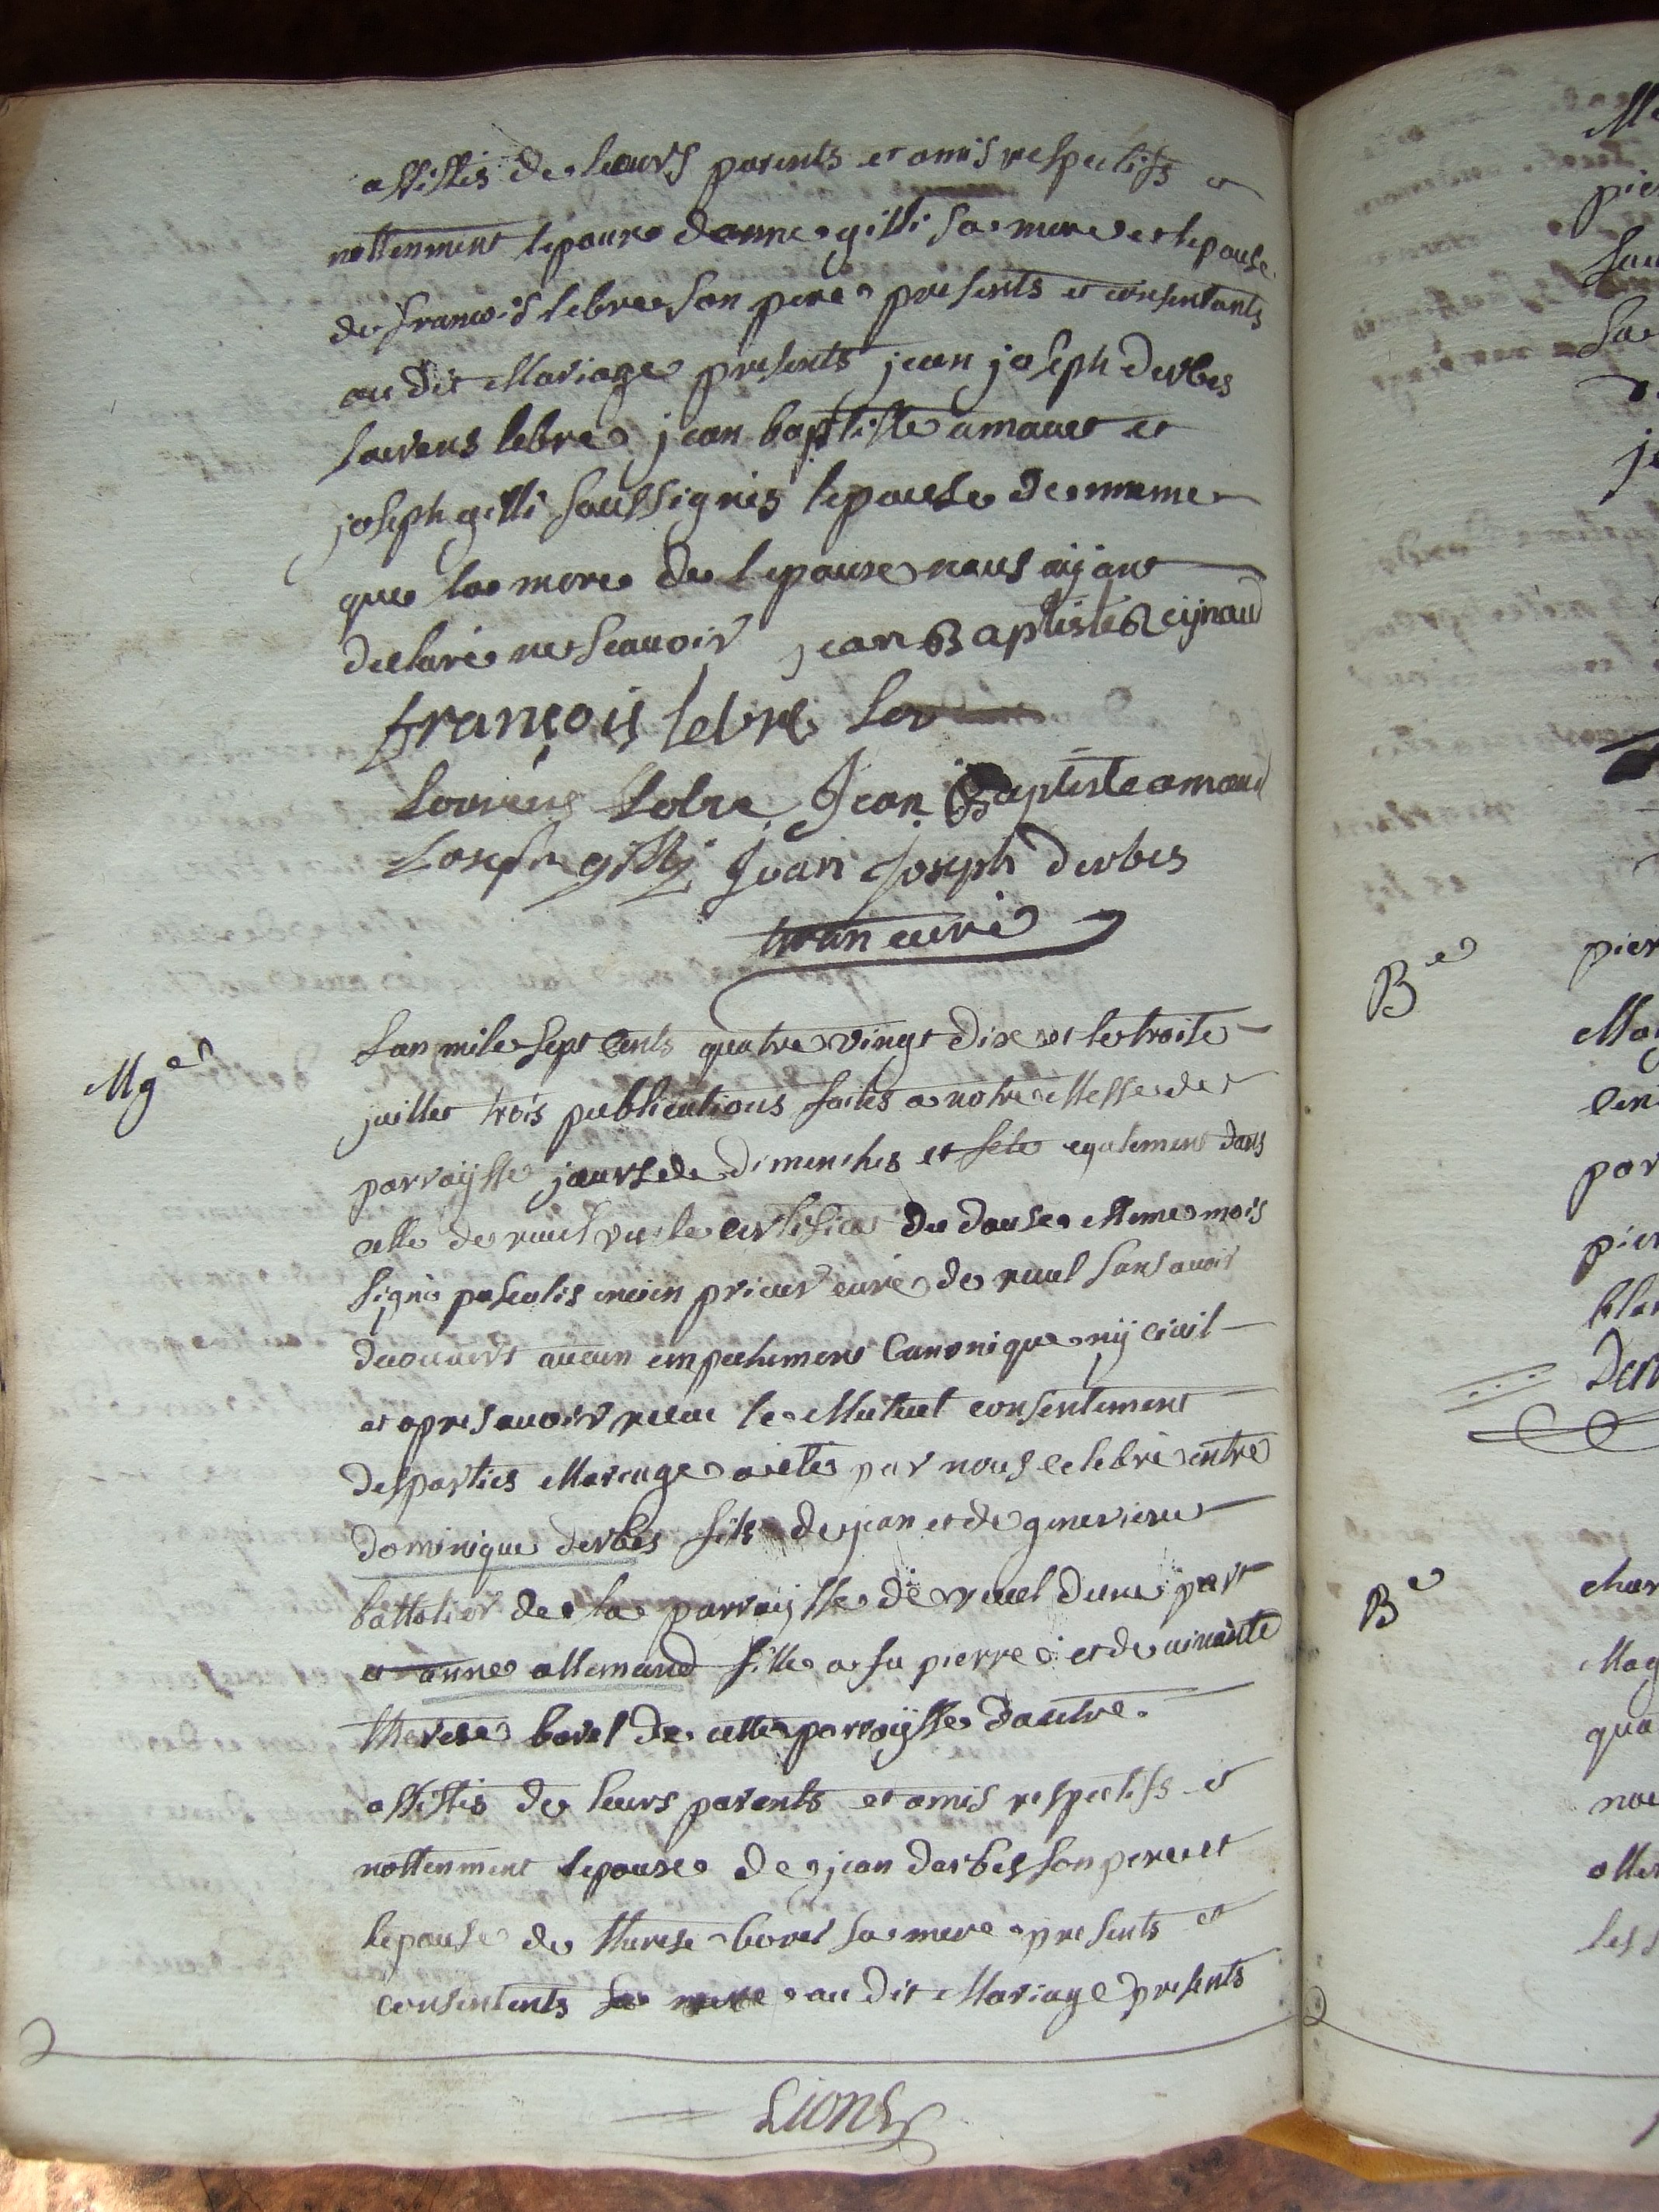 assistes de leurs parents et amis respectifs et
nottenment lepoux danne gilli sa mere et lepouse
de francois lebre son pere presents et consentants
au dit Mariage presents jean joseph derbes
laurens lebre jean baptiste amaud et
joseph gilli soussignés lepouse de meme
que la mere de lepoux nous aijant
declaré ne scauoir jean Baptiste Reijnaud
françois lebre
Lourens Lebre Jean Baptiste amaud
Joseph gilly Jean Joseph derbes
curé
Mge
Lan mile sept cents quatre vingt dix et le troite
juillet trois publications faites a notre Messe de
parroijsse jours de dimenches et fete egalement dans
celle de reuel vu le certificat du douse Meme mois
signé pascalis encien prieur curé de reuel sans auoir
decouuert aucun empechement Canonique nij ciuil
et apres auoir receu le Mutuel consentement
desparties Mariage a eté par nous celebré entre
dominique derbes fils de jean et de genevieve
battalier de la parroijsse de reuel dune part
et anne allemand fille a fu pierre et de viuante
therese borel de cette parroijsse dautre.
assistes de leurs parents et amis respectifs et
nottenment lepoux de jean derbes son pere et
lepouse de therese borel sa mere presents et
consentents sa mere au dit Mariage presents
Lions
Be
Be